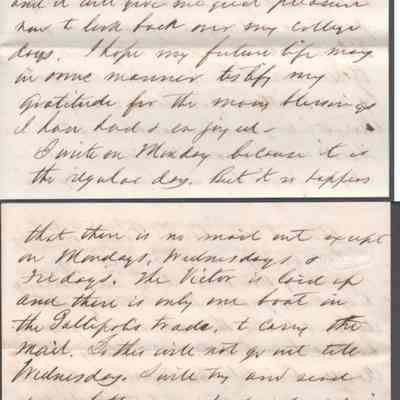 and it will give me great pleasure
now to look back over my college
days. I hope my future life may
in some manner testify my
gratitude for the many blessings
I have had & enjoyed.
I write on Monday because it is
the regular day. But it so happens
that there is no mail out except
on Mondays, Wednesdays &
Fridays. The Victor is laid up
and there is only one boat in
the Gallipolis trade, to carry the
mail. So this will not go out till
Wednesday. I will try and send